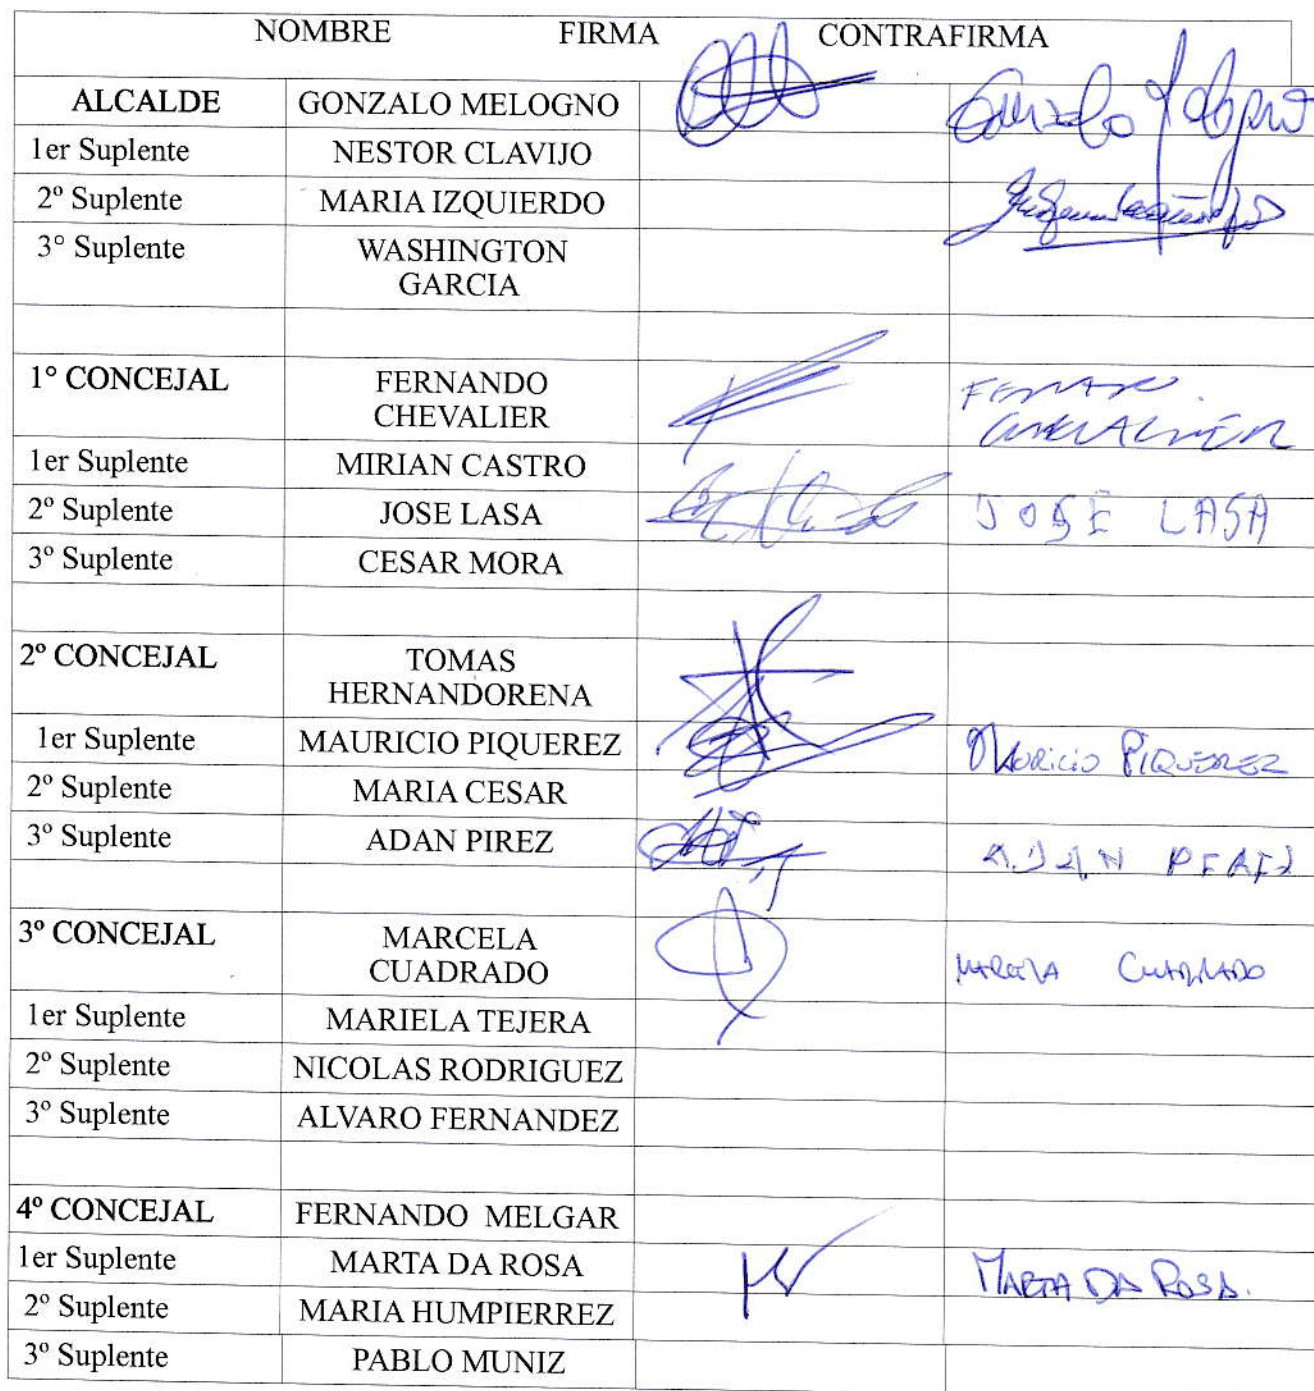 NOMBRE FIRMA CONTRAFIRMA
ALCALDE GONZALO MELOGNO Gonzalo Melogno
1er Suplente NESTOR CLAVIJO
2º Suplente MARIA IZQUIERDO
3° Suplente WASHINGTON
GARCIA
1° CONCEJAL FERNANDO
CHEVALIER
1er Suplente MIRIAN CASTRO
2º Suplente JOSE LASA JOSE LASA
3º Suplente CESAR MORA
2º CONCEJAL TOMAS
HERNANDORENA
1er Suplente MAURICIO PIQUEREZ MAURICIO PIQUEREZ
2º Suplente MARIA CESAR
3º Suplente ADAN PIREZ ADAN
3º CONCEJAL MARCELA
CUADRADO MARCELA CUADRADO
1er Suplente MARIELA TEJERA
2º Suplente NICOLAS RODRIGUEZ
3º Suplente ALVARO FERNANDEZ
4º CONCEJAL FERNANDO MELGAR
1er Suplente MARTA DA ROSA MARTA DA ROSA.
2º Suplente MARIA HUMPIERREZ
3º Suplente PABLO MUNIZ